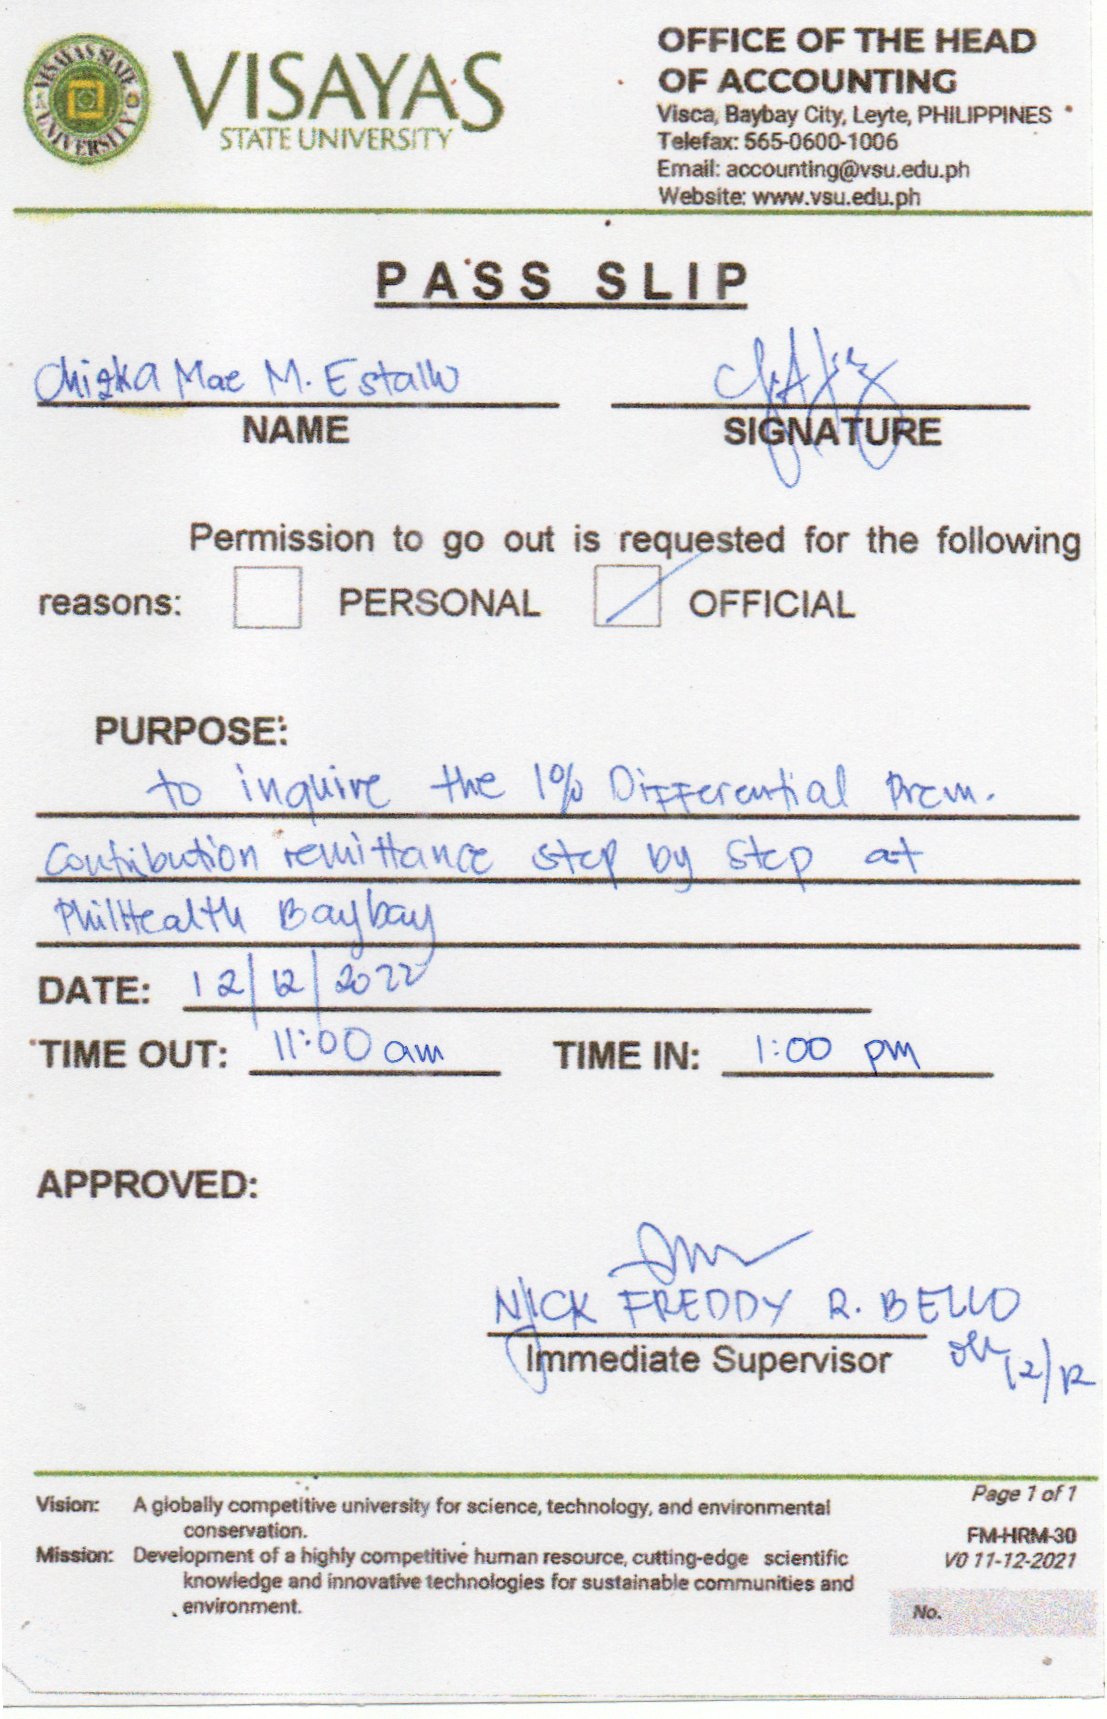 VISAYAS STATE UNIVERSITY
VISAYAS
STATE UNIVERSITY
OFFICE OF THE HEAD
OF ACCOUNTING
Visca, Baybay City, Leyte, PHILIPPINES
Telefax: 565-0600-1006
Email: accounting@vsu.edu.ph
Website: www.vsu.edu.ph
PASS SLIP
Mae M. Estallo
NAME
SIGNATURE
Permission to go out is requested for the following
reasons: PERSONAL OFFICIAL
PURPOSE:
to inquire the 1% Differential Prem.
Contribution remittance step by step at
PhilHealth Baybay
DATE: 12/12/2022
TIME OUT: 11:00 am TIME IN: 1:00 pm
APPROVED:
NICK FREDDY R. BELLO
Immediate Supervisor
12/12
Vision: A globally competitive university for science, technology, and environmental
conservation.
Mission: Development of a highly competitive human resource, cutting-edge scientific
knowledge and innovative technologies for sustainable communities and
environment.
Page 1 of 1
FM-HRM-30
V0 11-12-2021
No.